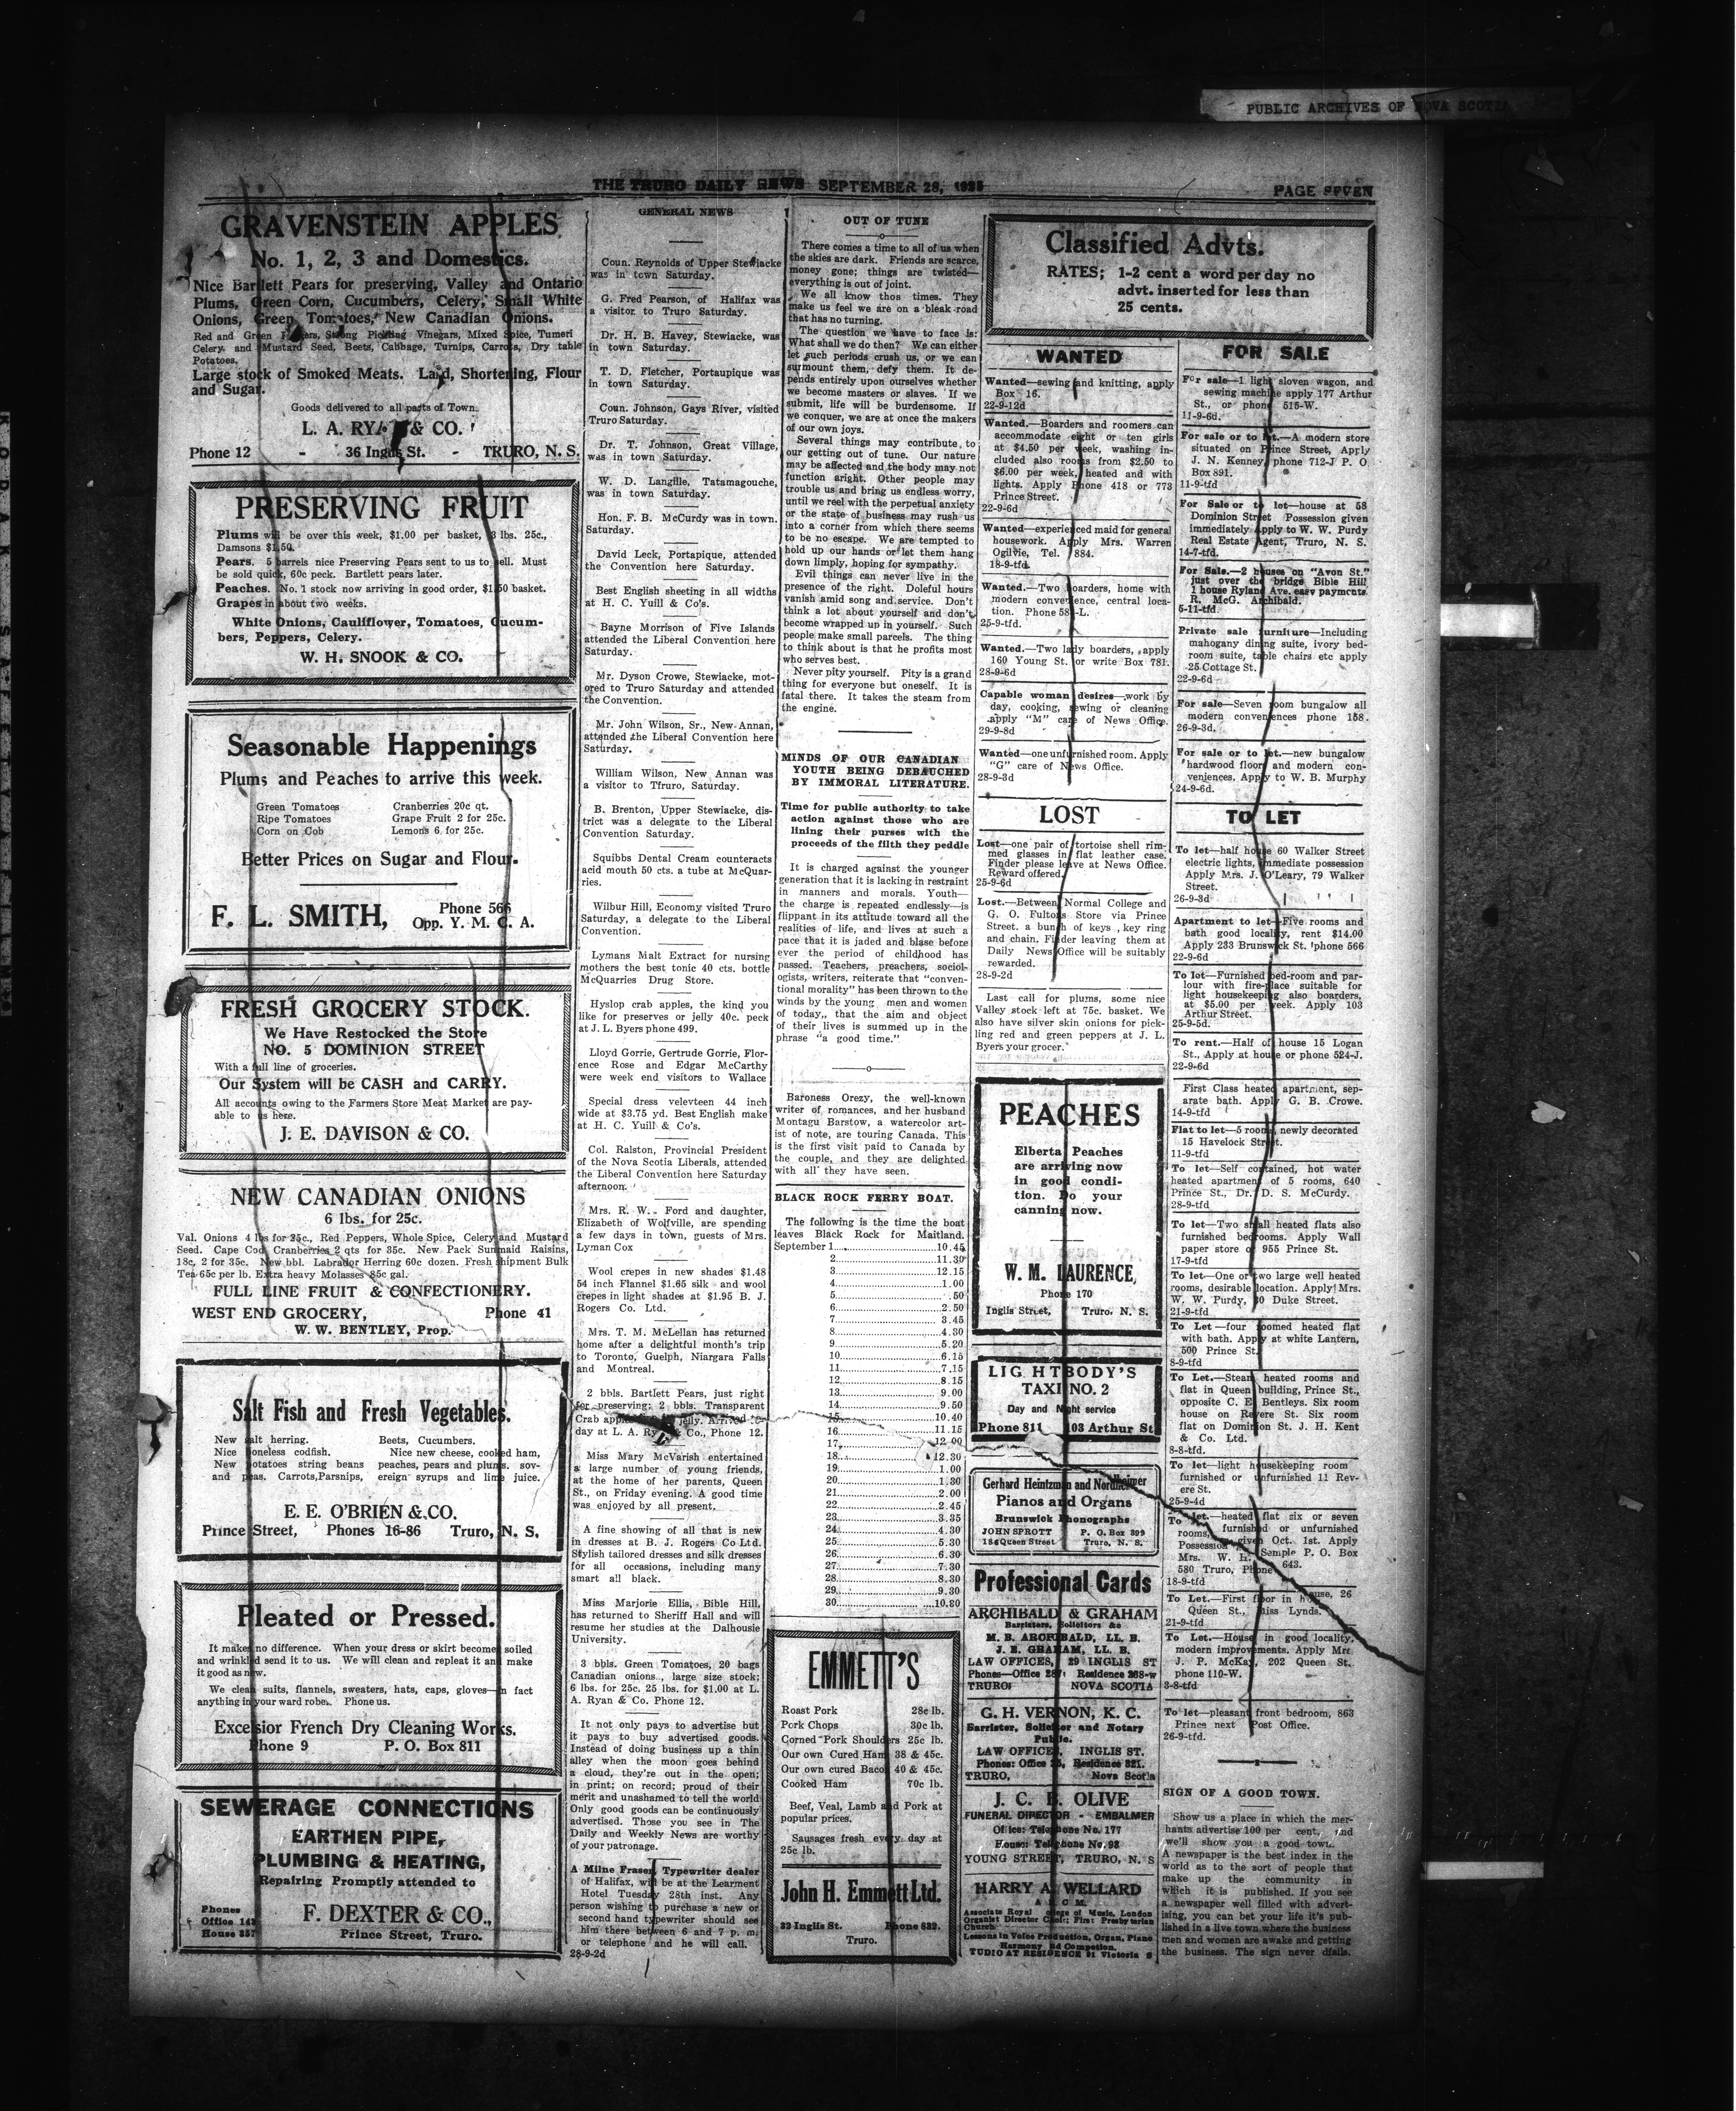 PUBLIC ARCHIVES OF NOVA SCOTIA
THE TRURO DAILY NEWS SEPTEMBER 28, 1925
PAGE SEVEN
GRAVENSTEIN APPLES
No. 1, 2, 3 and Domestics.
Nice Bartlett Pears for preserving, Valley and Ontario
Plums, Green Corn, Cucumbers, Celery, Small White
Onions, Green Tomatoes, New Canadian Onions.
Red and Green Peppers, Strong Pickling Vinegars, Mixed Spice, Tumeri
Celery and Mustard Seed, Beets, Cabbage, Turnips, Carrots, Dry table
Potatoes.
Large stock of Smoked Meats. Lard, Shortening, Flour
and Sugar.
Goods delivered to all parts of Town.
L. A. RYAN & CO.
Phone 12 - 36 Inglis St. - TRURO, N. S.
PRESERVING FRUIT
Plums will be over this week, $1.00 per basket, 3 lbs. 25c.,
Damsons $1.50.
Pears. 5 barrels nice Preserving Pears sent to us to sell. Must
be sold quick, 60c peck. Bartlett pears later.
Peaches. No. 1 stock now arriving in good order, $1.50 basket.
Grapes in about two weeks.
White Onions, Cauliflower, Tomatoes, Cucum-
bers, Peppers, Celery.
W. H. SNOOK & CO.
Seasonable Happenings
Plums and Peaches to arrive this week.
Green Tomatoes Cranberries 20c qt.
Ripe Tomatoes Grape Fruit 2 for 25c.
Corn on Cob Lemons 6 for 25c.
Better Prices on Sugar and Flour.
F. L. SMITH, Phone 566
Opp. Y. M. C. A.
FRESH GROCERY STOCK.
We Have Restocked the Store
NO. 5 DOMINION STREET
With a full line of groceries.
Our System will be CASH and CARRY.
All accounts owing to the Farmers Store Meat Market are pay-
able to us here.
J. E. DAVISON & CO.
NEW CANADIAN ONIONS
6 lbs. for 25c.
Val. Onions 4 lbs for 25c., Red Peppers, Whole Spice, Celery and Mustard
Seed. Cape Cod Cranberries 2 qts for 35c. New Pack Sunmaid Raisins,
18c, 2 for 35c. New bbl. Labrador Herring 60c dozen. Fresh shipment Bulk
Tea 65c per lb. Extra heavy Molasses 85c gal.
FULL LINE FRUIT & CONFECTIONERY.
WEST END GROCERY, Phone 41
W. W. BENTLEY, Prop.
Salt Fish and Fresh Vegetables.
New salt herring. Beets, Cucumbers.
Nice boneless codfish. Nice new cheese, cooked ham,
New potatoes string beans peaches, pears and plums. sov-
and peas. Carrots, Parsnips, ereign syrups and lime juice.
E. E. O'BRIEN & CO.
Prince Street, Phones 16-86 Truro, N. S.
Pleated or Pressed.
It makes no difference. When your dress or skirt become soiled
and wrinkled send it to us. We will clean and repleat it and make
it good as new.
We clean suits, flannels, sweaters, hats, caps, gloves—in fact
anything in your ward robe. Phone us.
Excelsior French Dry Cleaning Works.
Phone 9 P. O. Box 811
SEWERAGE CONNECTIONS
EARTHEN PIPE,
PLUMBING & HEATING,
Repairing Promptly attended to
Phones
Office 143
House 357
F. DEXTER & CO.,
Prince Street, Truro.
GENERAL NEWS
Coun. Reynolds of Upper Stewiacke
was in town Saturday.
G. Fred Pearson, of Halifax was
a visitor to Truro Saturday.
Dr. H. B. Havey, Stewiacke, was
in town Saturday.
T. D. Fletcher, Portaupique was
in town Saturday.
Coun. Johnson, Gays River, visited
Truro Saturday.
Dr. T. Johnson, Great Village,
was in town Saturday.
W. D. Langille, Tatamagouche,
was in town Saturday.
Hon. F. B. McCurdy was in town.
Saturday.
David Leck, Portapique, attended
the Convention here Saturday.
Best English sheeting in all widths
at H. C. Yuill & Co's.
Bayne Morrison of Five Islands
attended the Liberal Convention here
Saturday.
Mr. Dyson Crowe, Stewiacke, mot-
ored to Truro Saturday and attended
the Convention.
Mr. John Wilson, Sr., New Annan,
attended the Liberal Convention here
Saturday.
William Wilson, New Annan was
a visitor to Tfruro, Saturday.
B. Brenton, Upper Stewiacke, dis-
trict was a delegate to the Liberal
Convention Saturday.
Squibbs Dental Cream counteracts
acid mouth 50 cts. a tube at McQuar-
ries.
Wilbur Hill, Economy visited Truro
Saturday, a delegate to the Liberal
Convention.
Lymans Malt Extract for nursing
mothers the best tonic 40 cts. bottle
McQuarries Drug Store.
Hyslop crab apples, the kind you
like for preserves or jelly 40c. peck
at J. L. Byers phone 499.
Lloyd Gorrie, Gertrude Gorrie, Flor-
ence Rose and Edgar McCarthy
were week end visitors to Wallace
Special dress velevteen 44 inch
wide at $3.75 yd. Best English make
at H. C. Yuill & Co's.
Col. Ralston, Provincial President
of the Nova Scotia Liberals, attended
the Liberal Convention here Saturday
afternoon.
Mrs. R. W. Ford and daughter,
Elizabeth of Wolfville, are spending
a few days in town, guests of Mrs.
Lyman Cox
Wool crepes in new shades $1.48
54 inch Flannel $1.65 silk and wool
crepes in light shades at $1.95 B. J.
Rogers Co. Ltd.
Mrs. T. M. McLellan has returned
home after a delightful month's trip
to Toronto, Guelph, Niargara Falls
and Montreal.
2 bbls. Bartlett Pears, just right
for preserving; 2 bbls. Transparent
Crab apples jelly. Arrived
day at L. A. Ryan & Co., Phone 12.
Miss Mary McVarish entertained
a large number of young friends,
at the home of her parents, Queen
St., on Friday evening. A good time
was enjoyed by all present.
A fine showing of all that is new
in dresses at B. J. Rogers Co Ltd.
Stylish tailored dresses and silk dresses
for all occasions, including many
smart all black.
Miss Marjorie Ellis, Bible Hill,
has returned to Sheriff Hall and will
resume her studies at the Dalhousie
University.
3 bbls. Green Tomatoes, 20 bags
Canadian onions., large size stock;
6 lbs. for 25c. 25 lbs. for $1.00 at L.
A. Ryan & Co. Phone 12.
It not only pays to advertise but
it pays to buy advertised goods.
Instead of doing business up a thin
alley when the moon goes behind
a cloud, they're out in the open;
in print; on record; proud of their
merit and unashamed to tell the world
Only good goods can be continuously
advertised. Those you see in The
Daily and Weekly News are worthy
of your patronage.
A Milne Fraser, Typewriter dealer
of Halifax, will be at the Learment
Hotel Tuesday 28th inst. Any
person wishing to purchase a new or
second hand typewriter should see
him there between 6 and 7 p. m.
or telephone and he will call.
28-9-2d
OUT OF TUNE
There comes a time to all of us when
the skies are dark. Friends are scarce,
money gone; things are twisted—
everything is out of joint.
We all know thos times. They
make us feel we are on a bleak road
that has no turning.
The question we have to face is:
What shall we do then? We can either
let such periods crush us, or we can
surmount them, defy them. It de-
pends entirely upon ourselves whether
we become masters or slaves. If we
submit, life will be burdensome. If
we conquer, we are at once the makers
of our own joys.
Several things may contribute, to
our getting out of tune. Our nature
may be affected and the body may not
function aright. Other people may
trouble us and bring us endless worry,
until we reel with the perpetual anxiety
or the state of business may rush us
into a corner from which there seems
to be no escape. We are tempted to
hold up our hands or let them hang
down limply, hoping for sympathy.
Evil things can never live in the
presence of the right. Doleful hours
vanish amid song and service. Don't
think a lot about yourself and don't
become wrapped up in yourself. Such
people make small parcels. The thing
to think about is that he profits most
who serves best.
Never pity yourself. Pity is a grand
thing for everyone but oneself. It is
fatal there. It takes the steam from
the engine.
MINDS OF OUR CANADIAN
YOUTH BEING DEBAUCHED
BY IMMORAL LITERATURE.
Time for public authority to take
action against those who are
lining their purses with the
proceeds of the filth they peddle
It is charged against the younger
generation that it is lacking in restraint
in manners and morals. Youth—
the charge is repeated endlessly—is
flippant in its attitude toward all the
realities of life, and lives at such a
pace that it is jaded and blase before
ever the period of childhood has
passed. Teachers, preachers, sociol-
ogists, writers, reiterate that "conven-
tional morality" has been thrown to the
winds by the young men and women
of today,, that the aim and object
of their lives is summed up in the
phrase "a good time."
Baroness Orezy, the well-known
writer of romances, and her husband
Montagu Barstow, a watercolor art-
ist of note, are touring Canada. This
is the first visit paid to Canada by
the couple, and they are delighted
with all they have seen.
BLACK ROCK FERRY BOAT.
The following is the time the boat
leaves Black Rock for Maitland.
September 1 10.45
2 11.30
3 12.15
4 1.00
5 .50
6 2.50
7 3.45
8 4.30
9 5.20
10 6.15
11 7.15
12 8.15
13 9.00
14 9.50
15 10.40
16 11.15
17 12.00
18 12.30
19 1.00
20 1.30
21 2.00
22 2.45
23 3.35
24 4.30
25 5.30
26 6.30
27 7.30
28 8.30
29 9.30
30 10.30
EMMETT'S
Roast Pork 28c lb.
Pork Chops 30c lb.
Corned Pork Shoulders 25c lb.
Our own Cured Ham 38 & 45c.
Our own cured Bacon 40 & 45c.
Cooked Ham 70c lb.
Beef, Veal, Lamb and Pork at
popular prices.
Sausages fresh every day at
25c lb.
John H. Emmett Ltd.
33 Inglis St. Phone 632.
Truro.
Classified Advts.
RATES; 1-2 cent a word per day no
advt. inserted for less than
25 cents.
WANTED
Wanted—sewing and knitting, apply
Box 16.
22-9-12d
Wanted.—Boarders and roomers can
accommodate eight or ten girls
at $4.50 per week, washing in-
cluded also rooms from $2.50 to
$6.00 per week, heated and with
lights. Apply Phone 418 or 773
Prince Street.
22-9-6d
Wanted—experienced maid for general
housework. Apply Mrs. Warren
Ogilvie, Tel. 884.
18-9-tfd.
Wanted.—Two boarders, home with
modern convenience, central loca-
tion. Phone 58 -L.
25-9-tfd.
Wanted.—Two lady boarders, apply
160 Young St. or write Box 781.
28-9-6d
Capable woman desires—work by
day, cooking, sewing or cleaning
apply "M" care of News Office.
29-9-8d
Wanted—one unfurnished room. Apply
"G" care of News Office.
28-9-3d
LOST
Lost—one pair of tortoise shell rim-
med glasses in flat leather case.
Finder please leave at News Office.
Reward offered.
25-9-6d
Lost.—Between Normal College and
G. O. Fultons Store via Prince
Street. a bunch of keys, key ring
and chain. Finder leaving them at
Daily News Office will be suitably
rewarded.
28-9-2d
Last call for plums, some nice
Valley stock left at 75c. basket. We
also have silver skin onions for pick-
ling red and green peppers at J. L.
Byers your grocer.
PEACHES
Elberta Peaches
are arriving now
in good condi-
tion. Do your
canning now.
W. M. LAURENCE,
Phone 170
Inglis Street, Truro. N. S.
LIGHTBODY'S
TAXI NO. 2
Day and Night service
Phone 811 103 Arthur St
Gerhard Heintzman and Nordheimer
Pianos and Organs
Brunswick Phonographs
JOHN SPROTT P. O. Box 399
184 Queen Street Truro, N. S.
Professional Cards
ARCHIBALD & GRAHAM
Barristers, Solicitors &c
M. B. ARCHIBALD, LL. B.
J. E. GRAHAM, LL. B.
LAW OFFICES, 29 INGLIS ST
Phones—Office 28 Residence 368-w
TRURO NOVA SCOTIA
G. H. VERNON, K. C.
Barrister, Solicitor and Notary
Public.
LAW OFFICE, INGLIS ST.
Phones: Office Residence 321.
TRURO, Nova Scotia
J. C. B. OLIVE
FUNERAL DIRECTOR - EMBALMER
Office: Telephone No. 177
House: Telephone No. 98
YOUNG STREET, TRURO, N. S
HARRY A. WELLARD
A. R. C. M.
Associate Royal College of Music, London
Organist Director Choir; First Presbyterian
Church
Lessons in Voice Production, Organ, Piano
Harmony and Competion.
TUDIO AT RESIDENCE 91 Victoria S
FOR SALE
For sale—1 light sloven wagon, and
sewing machine apply 177 Arthur
St., or phone 515-W.
11-9-6d.
For sale or to let.—A modern store
situated on Prince Street, Apply
J. N. Kenney phone 712-J P. O
Box 891.
11-9-tfd
For Sale or to let—house at 58
Dominion Street Possession given
immediately Apply to W. W. Purdy
Real Estate Agent, Truro, N. S.
14-7-tfd.
For Sale.—2 houses on "Avon St."
just over the bridge Bible Hill
1 house Ryland Ave. easy payments.
R. McG. Archibald.
5-11-tfd.
Private sale furniture—Including
mahogany dining suite, ivory bed-
room suite, table chairs etc apply
25 Cottage St.
22-9-6d
For sale—Seven room bungalow all
modern conveniences phone 158.
26-9-3d.
For sale or to let.—new bungalow
hardwood floor and modern con-
veniences. Apply to W. B. Murphy
24-9-6d.
TO LET
To let—half house 60 Walker Street
electric lights, immediate possession
Apply Mrs. J. O'Leary, 79 Walker
Street.
26-9-3d
Apartment to let—Five rooms and
bath good locality, rent $14.00
Apply 233 Brunswick St. phone 566
22-9-6d
To let—Furnished bed-room and par-
lour with fire-place suitable for
light housekeeping also boarders,
at $5.00 per week. Apply 103
Arthur Street.
25-9-5d.
To rent.—Half of house 15 Logan
St., Apply at house or phone 524-J.
22-9-6d
First Class heated apartment, sep-
arate bath. Apply G. B. Crowe.
14-9-tfd
Flat to let—5 rooms, newly decorated
15 Havelock Street.
11-9-tfd
To let—Self contained, hot water
heated apartment of 5 rooms, 640
Prince St., Dr. D. S. McCurdy.
28-9-tfd
To let—Two small heated flats also
furnished bedrooms. Apply Wall
paper store or 955 Prince St.
17-9-tfd
To let—One or two large well heated
rooms, desirable location. Apply Mrs.
W. W. Purdy, 30 Duke Street.
21-9-tfd
To Let—four roomed heated flat
with bath. Apply at white Lantern,
500 Prince St.
8-9-tfd
To Let.—Steam heated rooms and
flat in Queen building, Prince St.,
opposite C. E. Bentleys. Six room
house on Revere St. Six room
flat on Dominion St. J. H. Kent
& Co. Ltd.
8-8-tfd.
To let—light housekeeping room
furnished or unfurnished 11 Rev-
ere St.
25-9-4d
To let.—heated flat six or seven
rooms, furnished or unfurnished
Possession given Oct. 1st. Apply
Mrs. W. H. Semple P. O. Box
580 Truro, Phone 643.
18-9-tfd
To Let.—First floor in house, 26
Queen St., Miss Lynds.
21-9-tfd
To Let.—House in good locality,
modern improvements. Apply Mrs.
J. P. McKay, 202 Queen St.,
phone 110-W.
3-8-tfd
To let—pleasant front bedroom, 863
Prince next Post Office.
26-9-tfd.
SIGN OF A GOOD TOWN.
Show us a place in which the mer-
chants advertise 100 per cent, and
we'll show you a good town.
A newspaper is the best index in the
world as to the sort of people that
make up the community in
which it is published. If you see
a newspaper well filled with advert-
ising, you can bet your life it's pub-
lished in a live town where the business
men and women are awake and getting
the business. The sign never dfails.